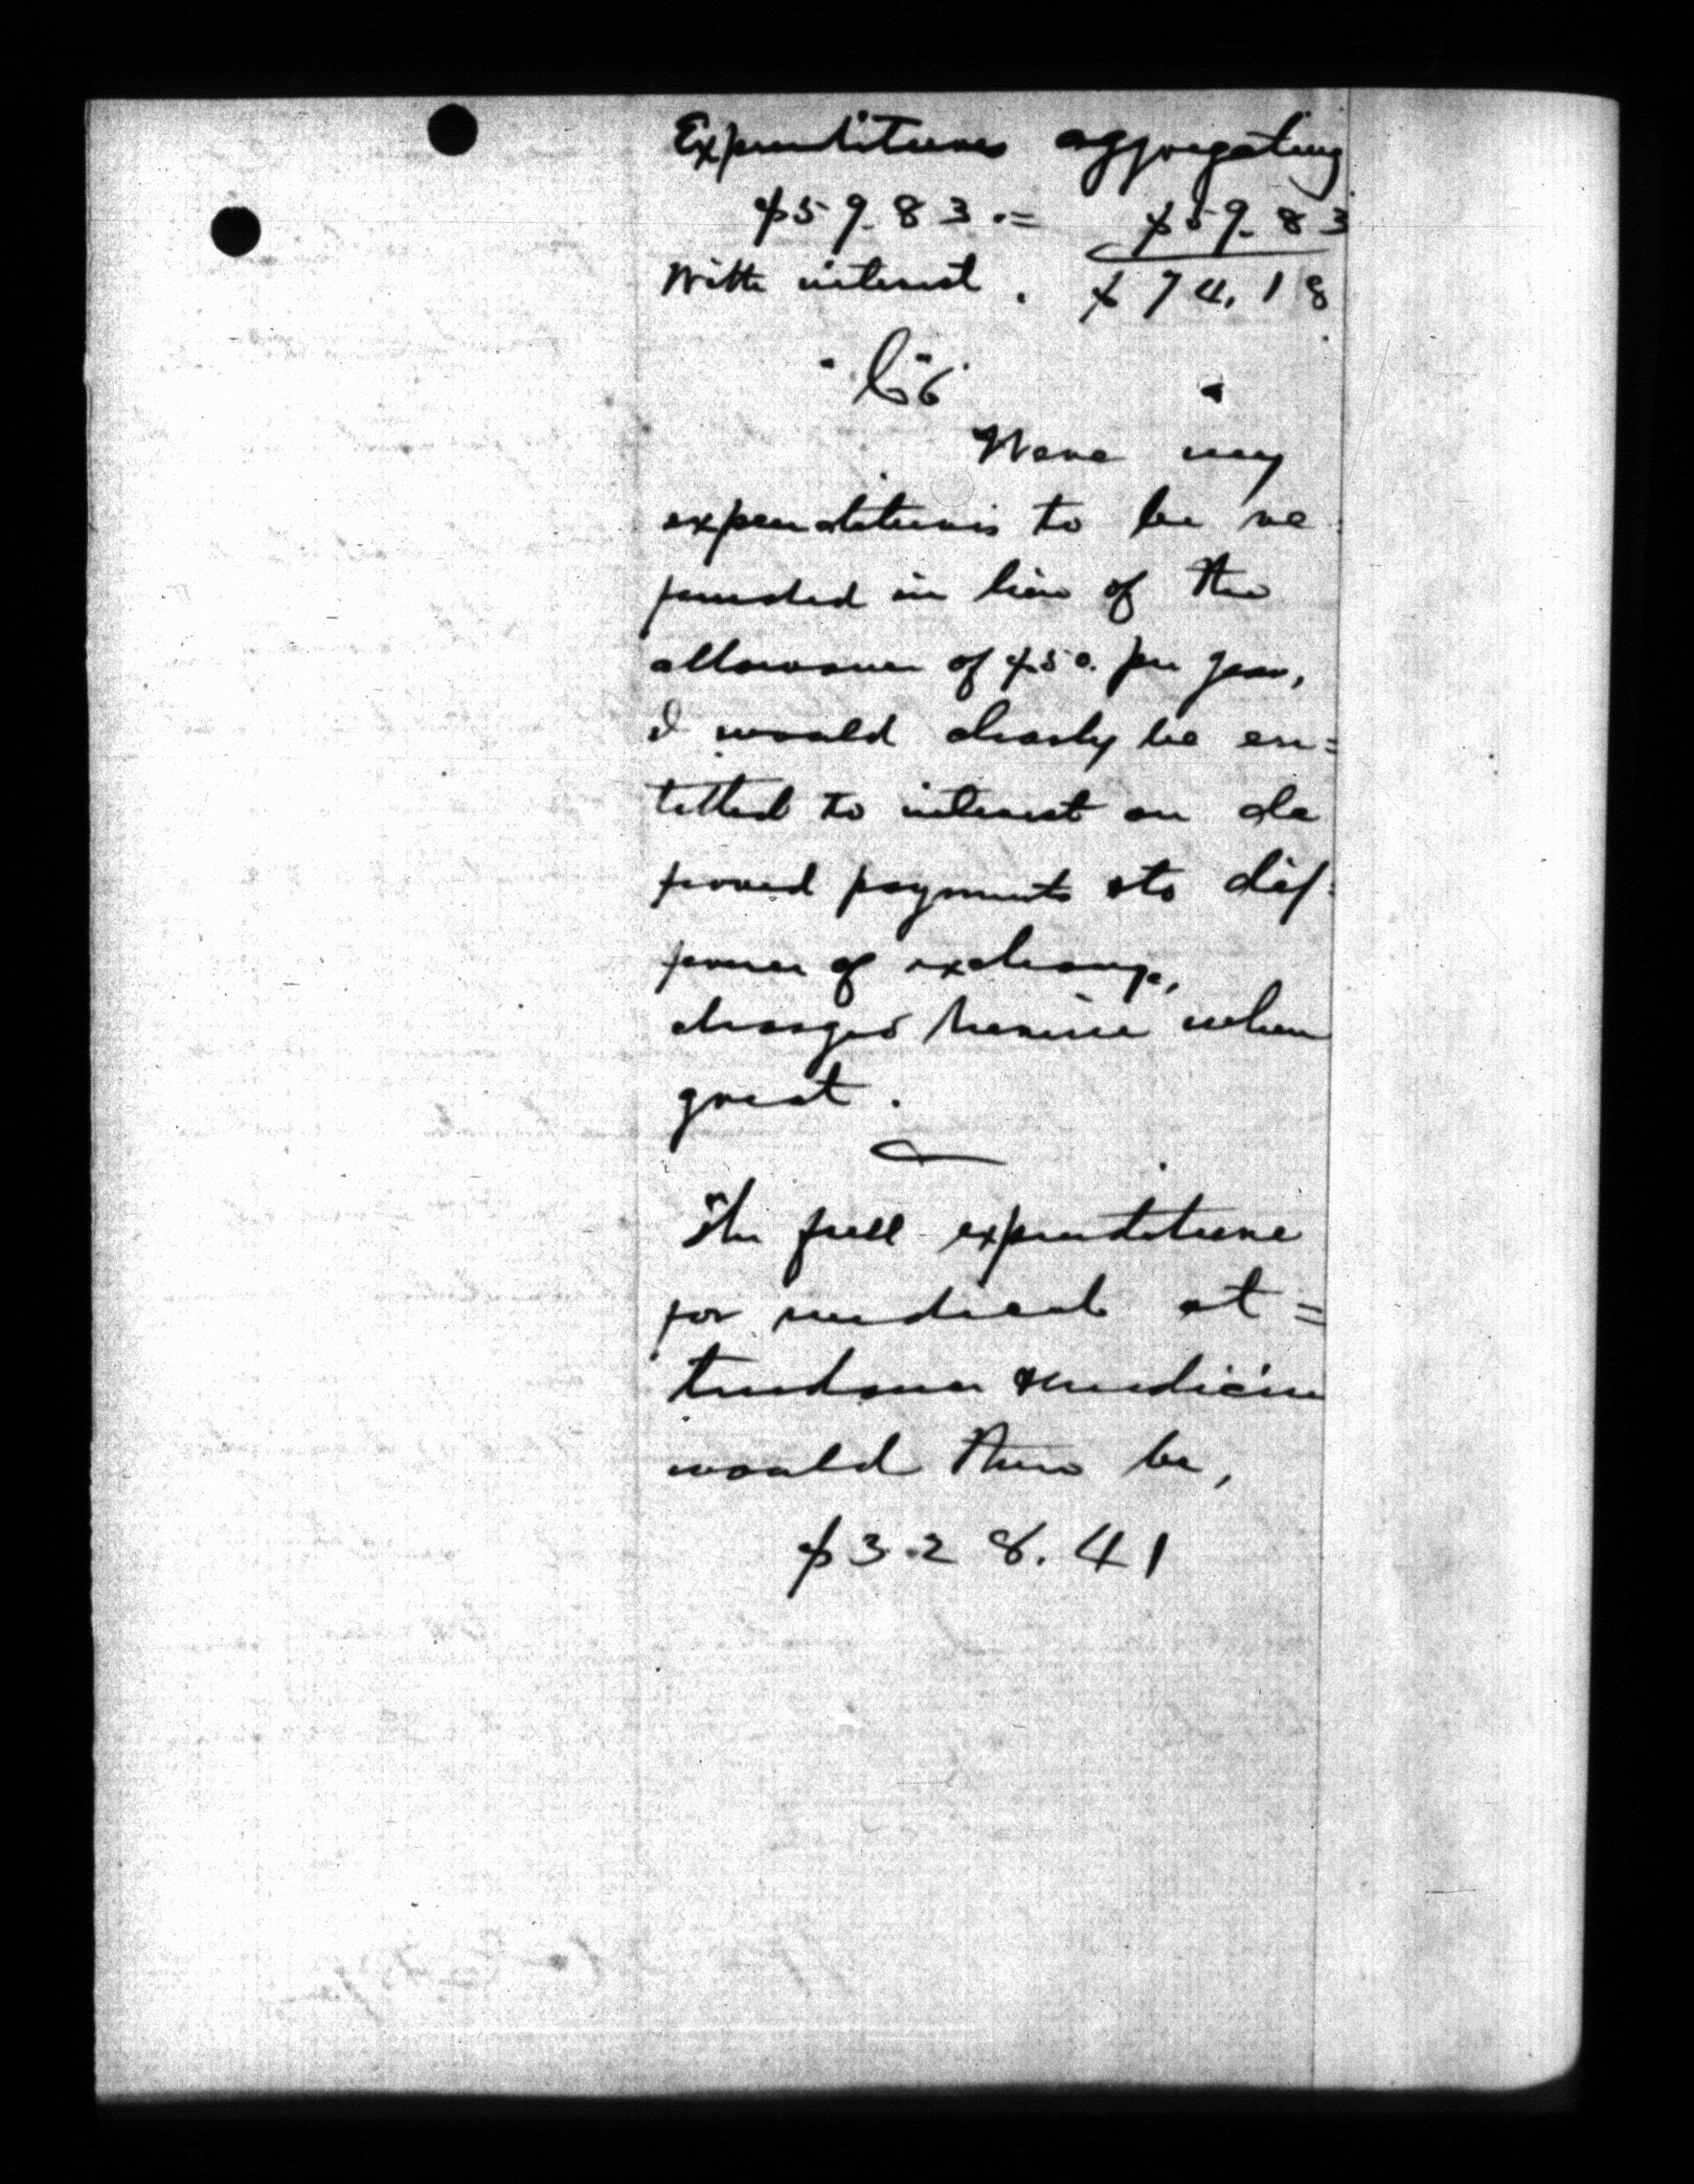 Expenditures aggregating
$59.83.= $59.83
With interest. $74.18
"C"6
Were my
expenditures to be re
funded in lieu of the
allowance of $50. per year,
I would clearly be en=
titled to interest on de
ferred payments & to dif-
ference of exchange,
charges herein when
great.
The full expenditure
for medical at=
tendance & medicine
would then be,
$328.41